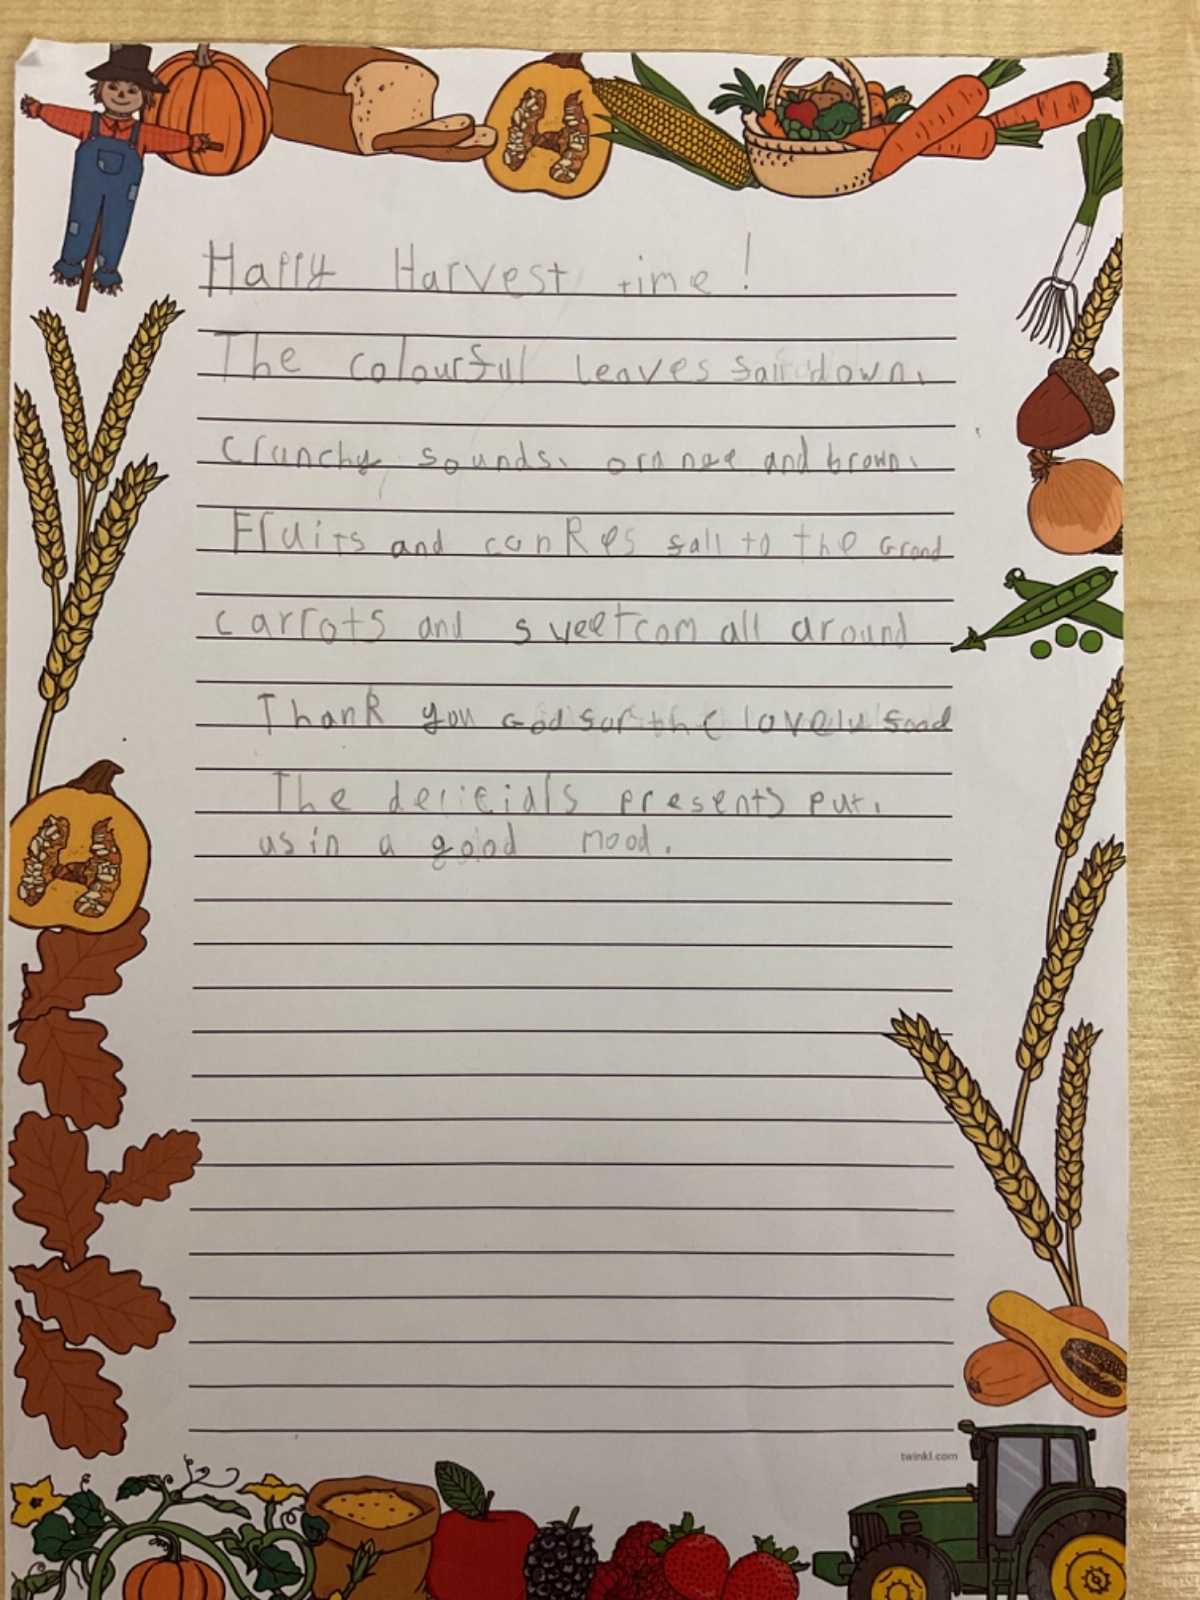 Happy Harvest time!
The colourful leaves down.
Crunchy sounds. orange and brown.
Fruits and conkes fall to the Grond
carrots and sweetcorn all around
Thank you God for the lovely food
The presents put.
us in a good mood.
twinkl.com